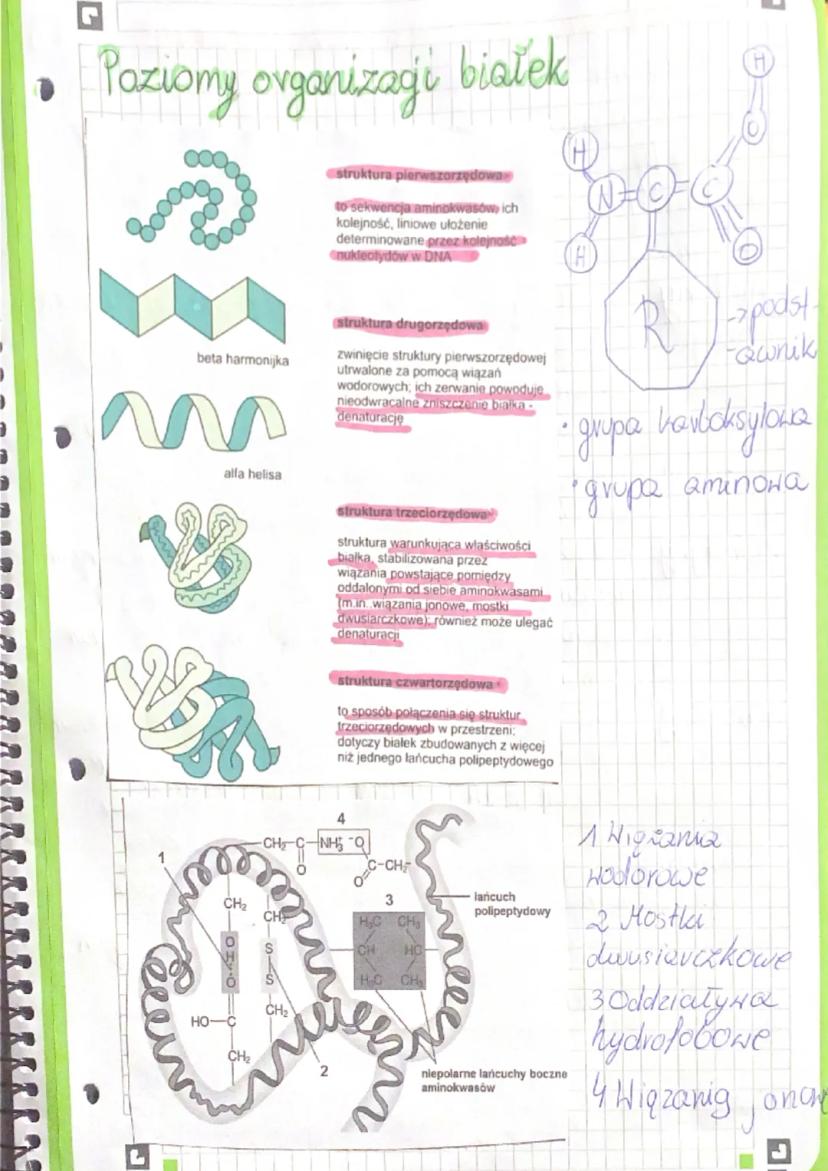 Poziomy organizacji białek
struktura pierwszorzędowa
to sekwencja aminokwasów, ich
kolejność, liniowe ułożenie
determinowane przez kolejność
nukleotydów w DNA
beta harmonijka
struktura drugorzędowa
zwinięcie struktury pierwszorzędowej
utrwalone za pomocą wiązań
wodorowych; ich zerwanie powoduje
nieodwracalne zniszczenie białka -
denaturację
alfa helisa
struktura trzeciorzędowa
struktura warunkująca właściwości
białka, stabilizowana przez
wiązania powstające pomiędzy
oddalonymi od siebie aminokwasami
(m.in. wiązania jonowe, mostki
dwusiarczkowe); również może ulegać
denaturacji
struktura czwartorzędowa
to sposób połączenia się struktur
trzeciorzędowych w przestrzeni;
dotyczy białek zbudowanych z więcej
niż jednego łańcucha polipeptydowego
H
O
H
N = C = C
H
O
R
→ podst-
-awnik
• grupa karboksylowa
• grupa aminowa
4
CH₂-C-NH₃⁺ ⁻O
O
C-CH₂
O
1
3
łańcuch
polipeptydowy
CH₂
CH₂
H₃C CH₃
O
H
O
S
S
CH HC
H₃C CH₃
HO-C
CH₂
CH₂
2
niepolarne łańcuchy boczne
aminokwasów
1 Wiązania
wodorowe
2 Mostki
dwusiarczkowe
3 Oddziaływa
hydrofobowe
4 Wiązania jonow